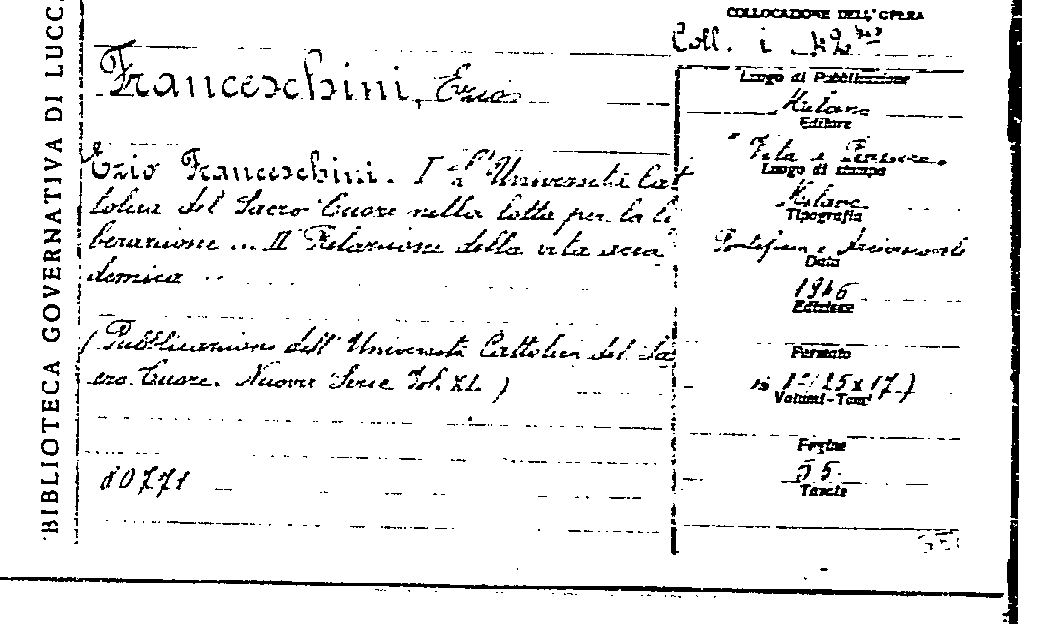 BIBLIOTECA GOVERNATIVA DI LUCCA
COLLOCAZIONE DELL'OPERA
Coll. i
Franceschini, Ezio
Ezio Franceschini. I L'Università Cat
tolica del Sacro Cuore nella lotta per la li
berazione ... II Relazione della vita acca
demica ..
(Pubblicazione dell'Università Cattolica del Sa
cro Cuore. Nuova Serie Vol. XL )
80771
Luogo di Pubblicazione
Milano
Editore
"Vita e Pensiero"
Luogo di stampa
Milano
Tipografia
Pontificia e Arcivescovile
Data
1946
Edizione
Formato
in 8° (25x17)
Volumi-Tomi
Pagine
55
Tavole